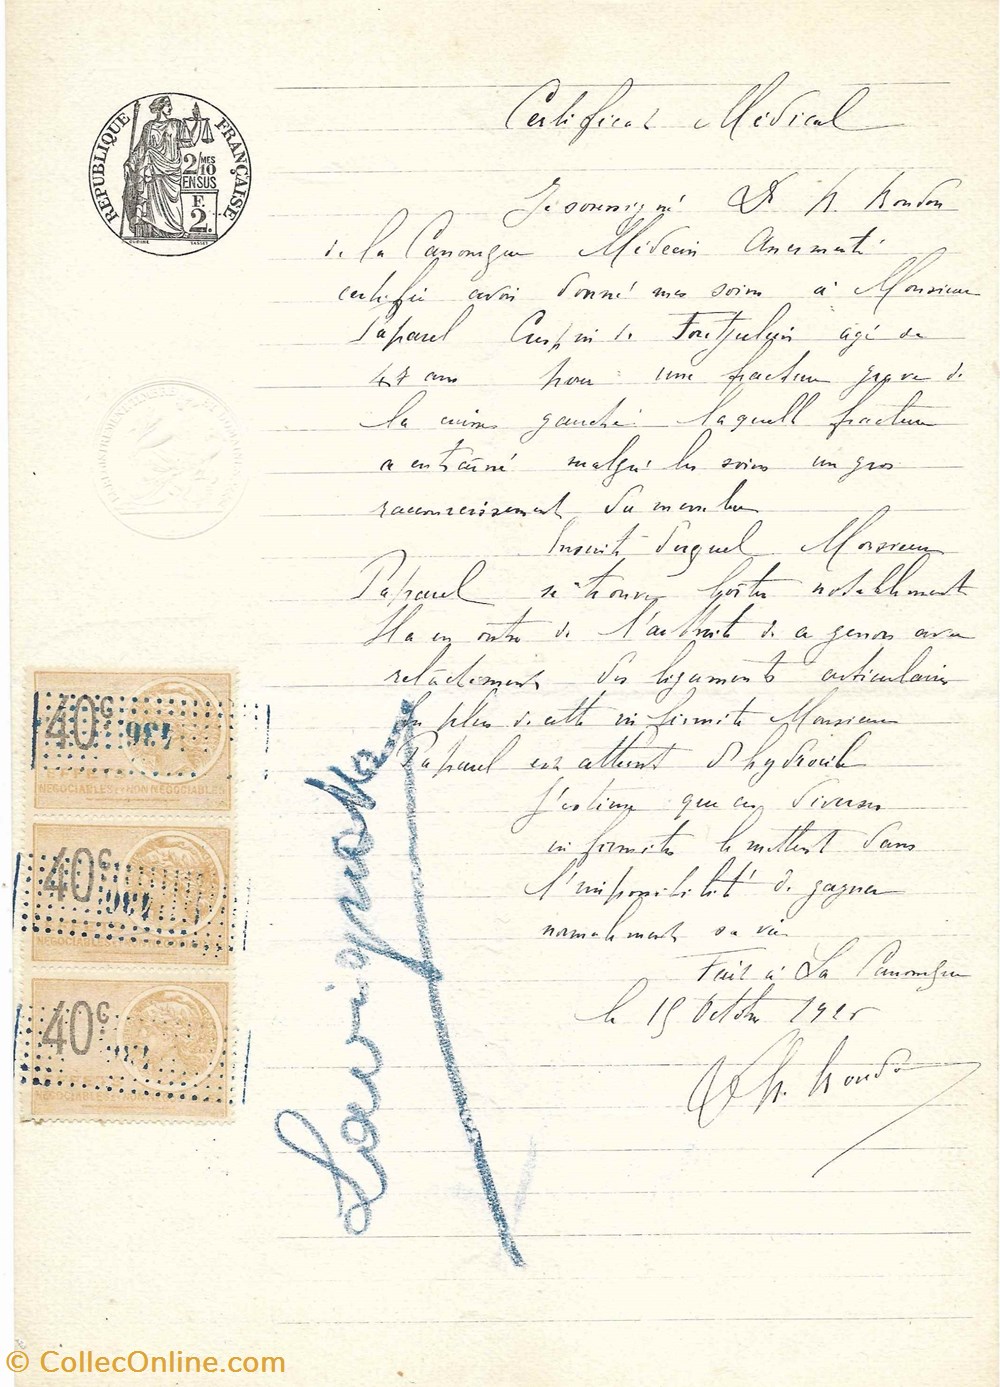 RÉPUBLIQUE FRANÇAISE
2/10 MES
EN SUS
F.
2.
Certificat Médical
Je soussigné Dr H. Rondon
de La Canourgue Médecin Assermenté
certifie avoir donné mes soins à Monsieur
Paparel Crespin de Fontjulien agé de
47 ans pour une fracture grave de
la cuisse gauche laquelle fracture
a entrainé malgré les soins un gros
raccourcissement du membre
Ensuite duquel Monsieur
Paparel se trouve boiter notablement
Il a en outre de l'arthrite de ce genou avec
relâchements des ligaments articulaires
En plus de cette infirmité Monsieur
Paparel est atteint d'hydrocèle
J'estime que ces diverses
infirmités le mettent dans
l'impossibilité de gagner
normalement sa vie
Fait à La Canourgue
le 15 Octobre 1925
Dr H. Rondon
40C
436
NÉGOCIABLES ET NON NÉGOCIABLES
40C
436
NÉGOCIABLES
40C
436
NÉGOCIABLES ET NON NÉGOCIABLES
© CollecOnline.com